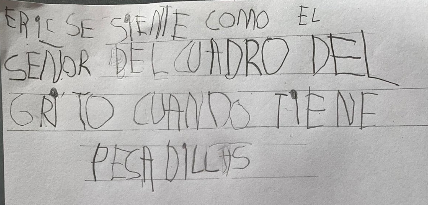 ERIC SE SIENTE COMO EL
SEÑOR DEL CUADRO DEL
GRITO CUANDO TIENE
PESADILLAS